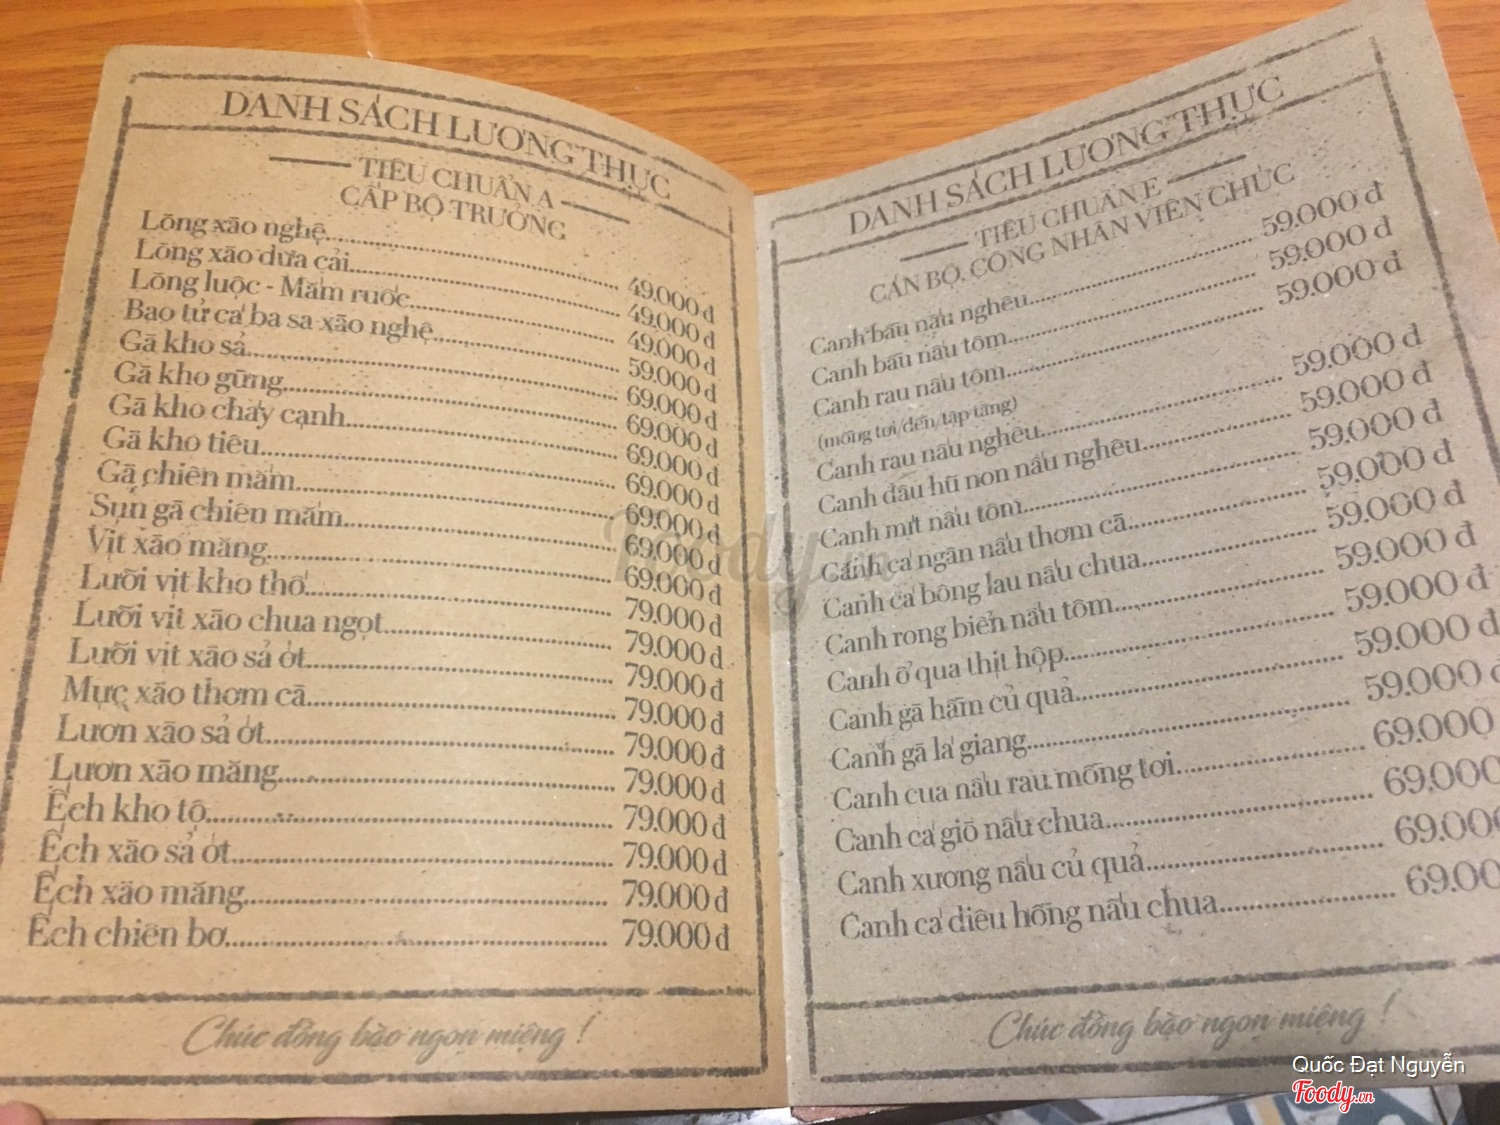 DANH SÁCH LƯƠNG THỰC
TIÊU CHUẨN A
CẤP BỘ TRƯỞNG
Lòng xào nghệ 49.000 đ
Lòng xào dưa cải 49.000 đ
Lòng luộc - Mắm ruốc 49.000 đ
Bao tử cá ba sa xào nghệ 59.000 đ
Gà kho sả 69.000 đ
Gà kho gừng 69.000 đ
Gà kho cháy cạnh 69.000 đ
Gà kho tiêu 69.000 đ
Gà chiên mắm 69.000 đ
Sụn gà chiên mắm 69.000 đ
Vịt xào măng 69.000 đ
Lưỡi vịt kho thố 79.000 đ
Lưỡi vịt xào chua ngọt 79.000 đ
Lưỡi vịt xào sả ớt 79.000 đ
Mực xào thơm cà 79.000 đ
Lươn xào sả ớt 79.000 đ
Lươn xào măng 79.000 đ
Ếch kho tộ 79.000 đ
Ếch xào sả ớt 79.000 đ
Ếch xào măng 79.000 đ
Ếch chiên bơ 79.000 đ
Chúc đồng bào ngon miệng !
DANH SÁCH LƯƠNG THỰC
TIÊU CHUẨN E
CÁN BỘ, CÔNG NHÂN VIÊN CHỨC
Canh bầu nấu nghêu 59.000 đ
Canh bầu nấu tôm 59.000 đ
Canh rau nấu tôm 59.000 đ
(mồng tơi/dền/tập tàng)
Canh rau nấu nghêu 59.000 đ
Canh đậu hũ non nấu nghêu 59.000 đ
Canh mít nấu tôm 59.000 đ
Canh cá ngân nấu thơm cà 59.000 đ
Canh cá bông lau nấu chua 59.000 đ
Canh rong biển nấu tôm 59.000 đ
Canh ổ qua thịt hộp 59.000 đ
Canh gà hầm củ quả 59.000 đ
Canh gà lá giang 59.000 đ
Canh cua nấu rau mồng tơi 69.000
Canh cá giò nấu chua 69.000
Canh xương nấu củ quả 69.000
Canh cá diêu hồng nấu chua 69.00
Chúc đồng bào ngon miệng !
Foody.vn
Quốc Đạt Nguyễn
Foody.vn